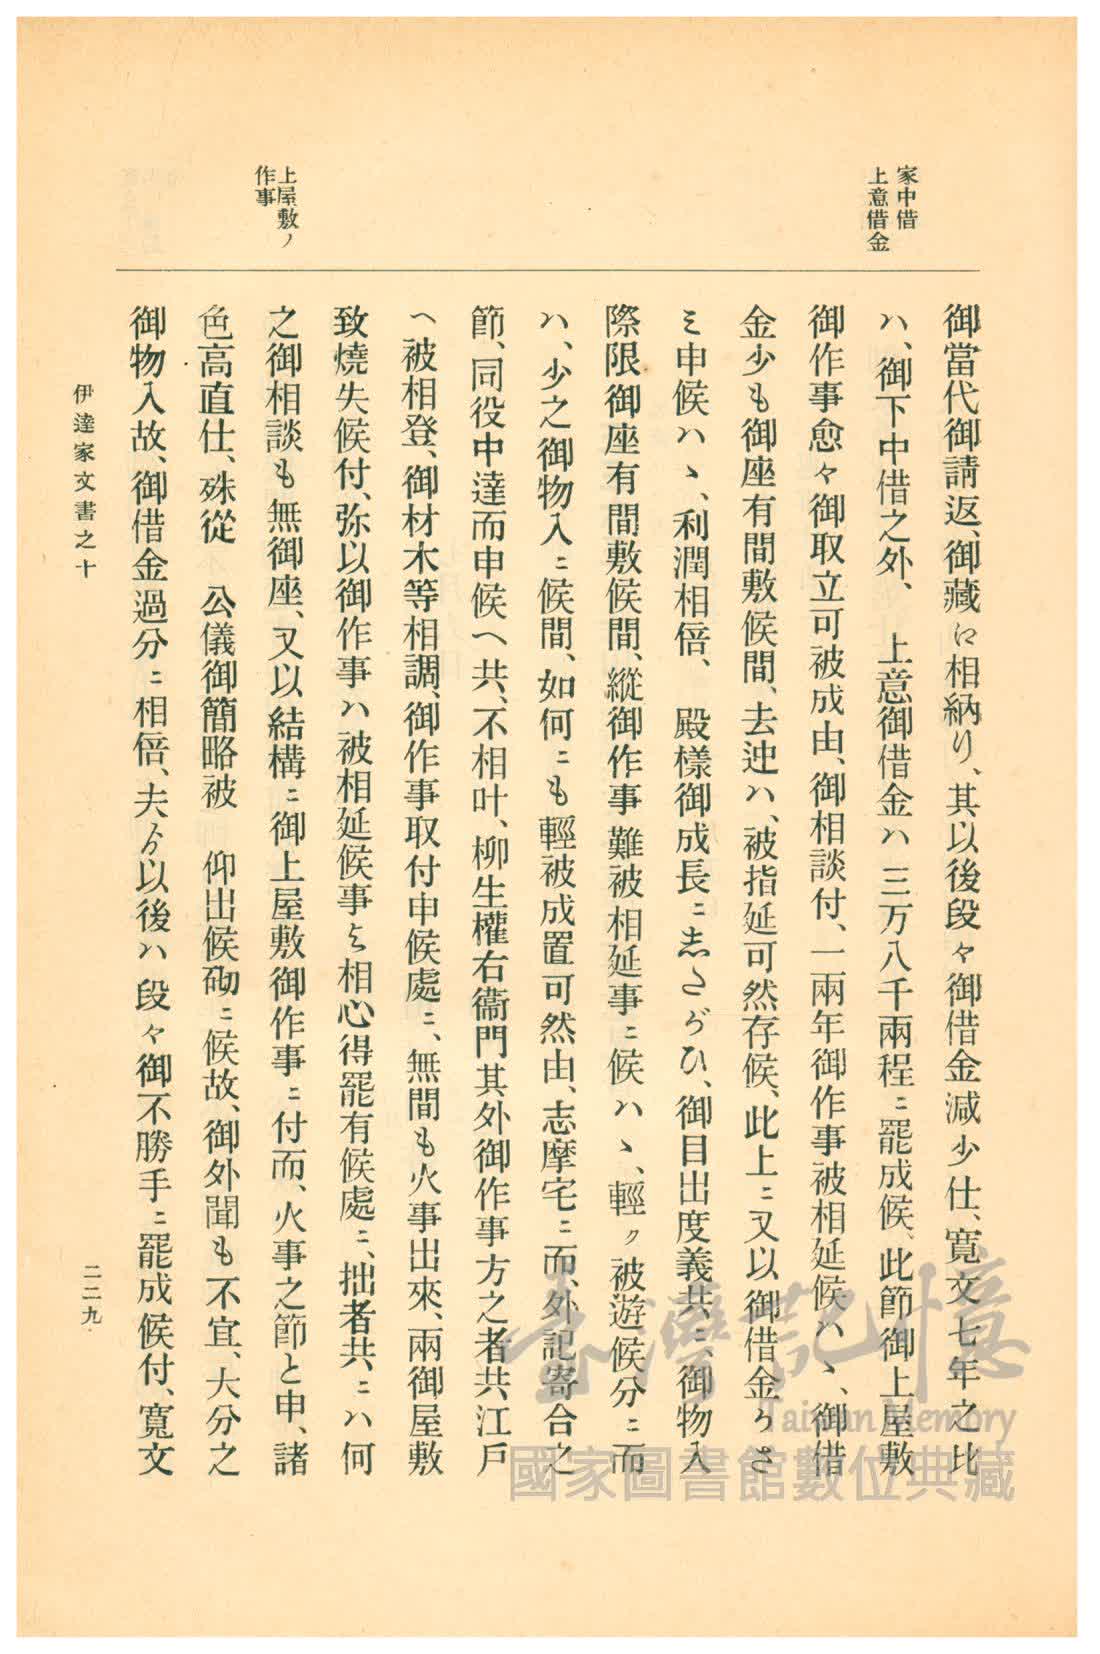 家中借
上意借金
御當代御請返、御藏江相納り、其以後段々御借金減少仕、寛文七年之比
ハ、御下中借之外、　上意御借金ハ三万八千兩程ニ罷成候、此節御上屋敷
御作事愈々御取立可被成由、御相談付、一兩年御作事被相延候ハヽ、御借
金少も御座有間敷候間、去迚ハ、被指延可然存候、此上ニ又以御借金かさ
ミ申候ハヽ、利潤相倍、　殿樣御成長ニ志たがひ、御目出度義共ニ、御物入
際限御座有間敷候間、縱御作事難被相延事ニ候ハヽ、輕ク被遊候分ニ而
ハ、少之御物入ニ候間、如何ニも輕被成置可然由、志摩宅ニ而、外記寄合之
節、同役中達而申候へ共、不相叶、柳生權右衞門其外御作事方之者共、江戸
へ被相登、御材木等相調、御作事取付申候處ニ、無間も火事出來、兩御屋敷
致燒失候付、弥以御作事ハ被相延候事与相心得罷有候處ニ、拙者共ニハ何
之御相談も無御座、又以結構ニ御上屋敷御作事ニ付而、火事之節と申、諸
色高直仕、殊從　公儀御簡略被　仰出候砌ニ候故、御外聞も不宜、大分之
御物入故、御借金過分ニ相倍、夫ゟ以後ハ段々御不勝手ニ罷成候付、寛文
上屋敷ノ
作事
伊達家文書之十
二二九
臺灣記憶
Taiwan Memory
國家圖書館數位典藏